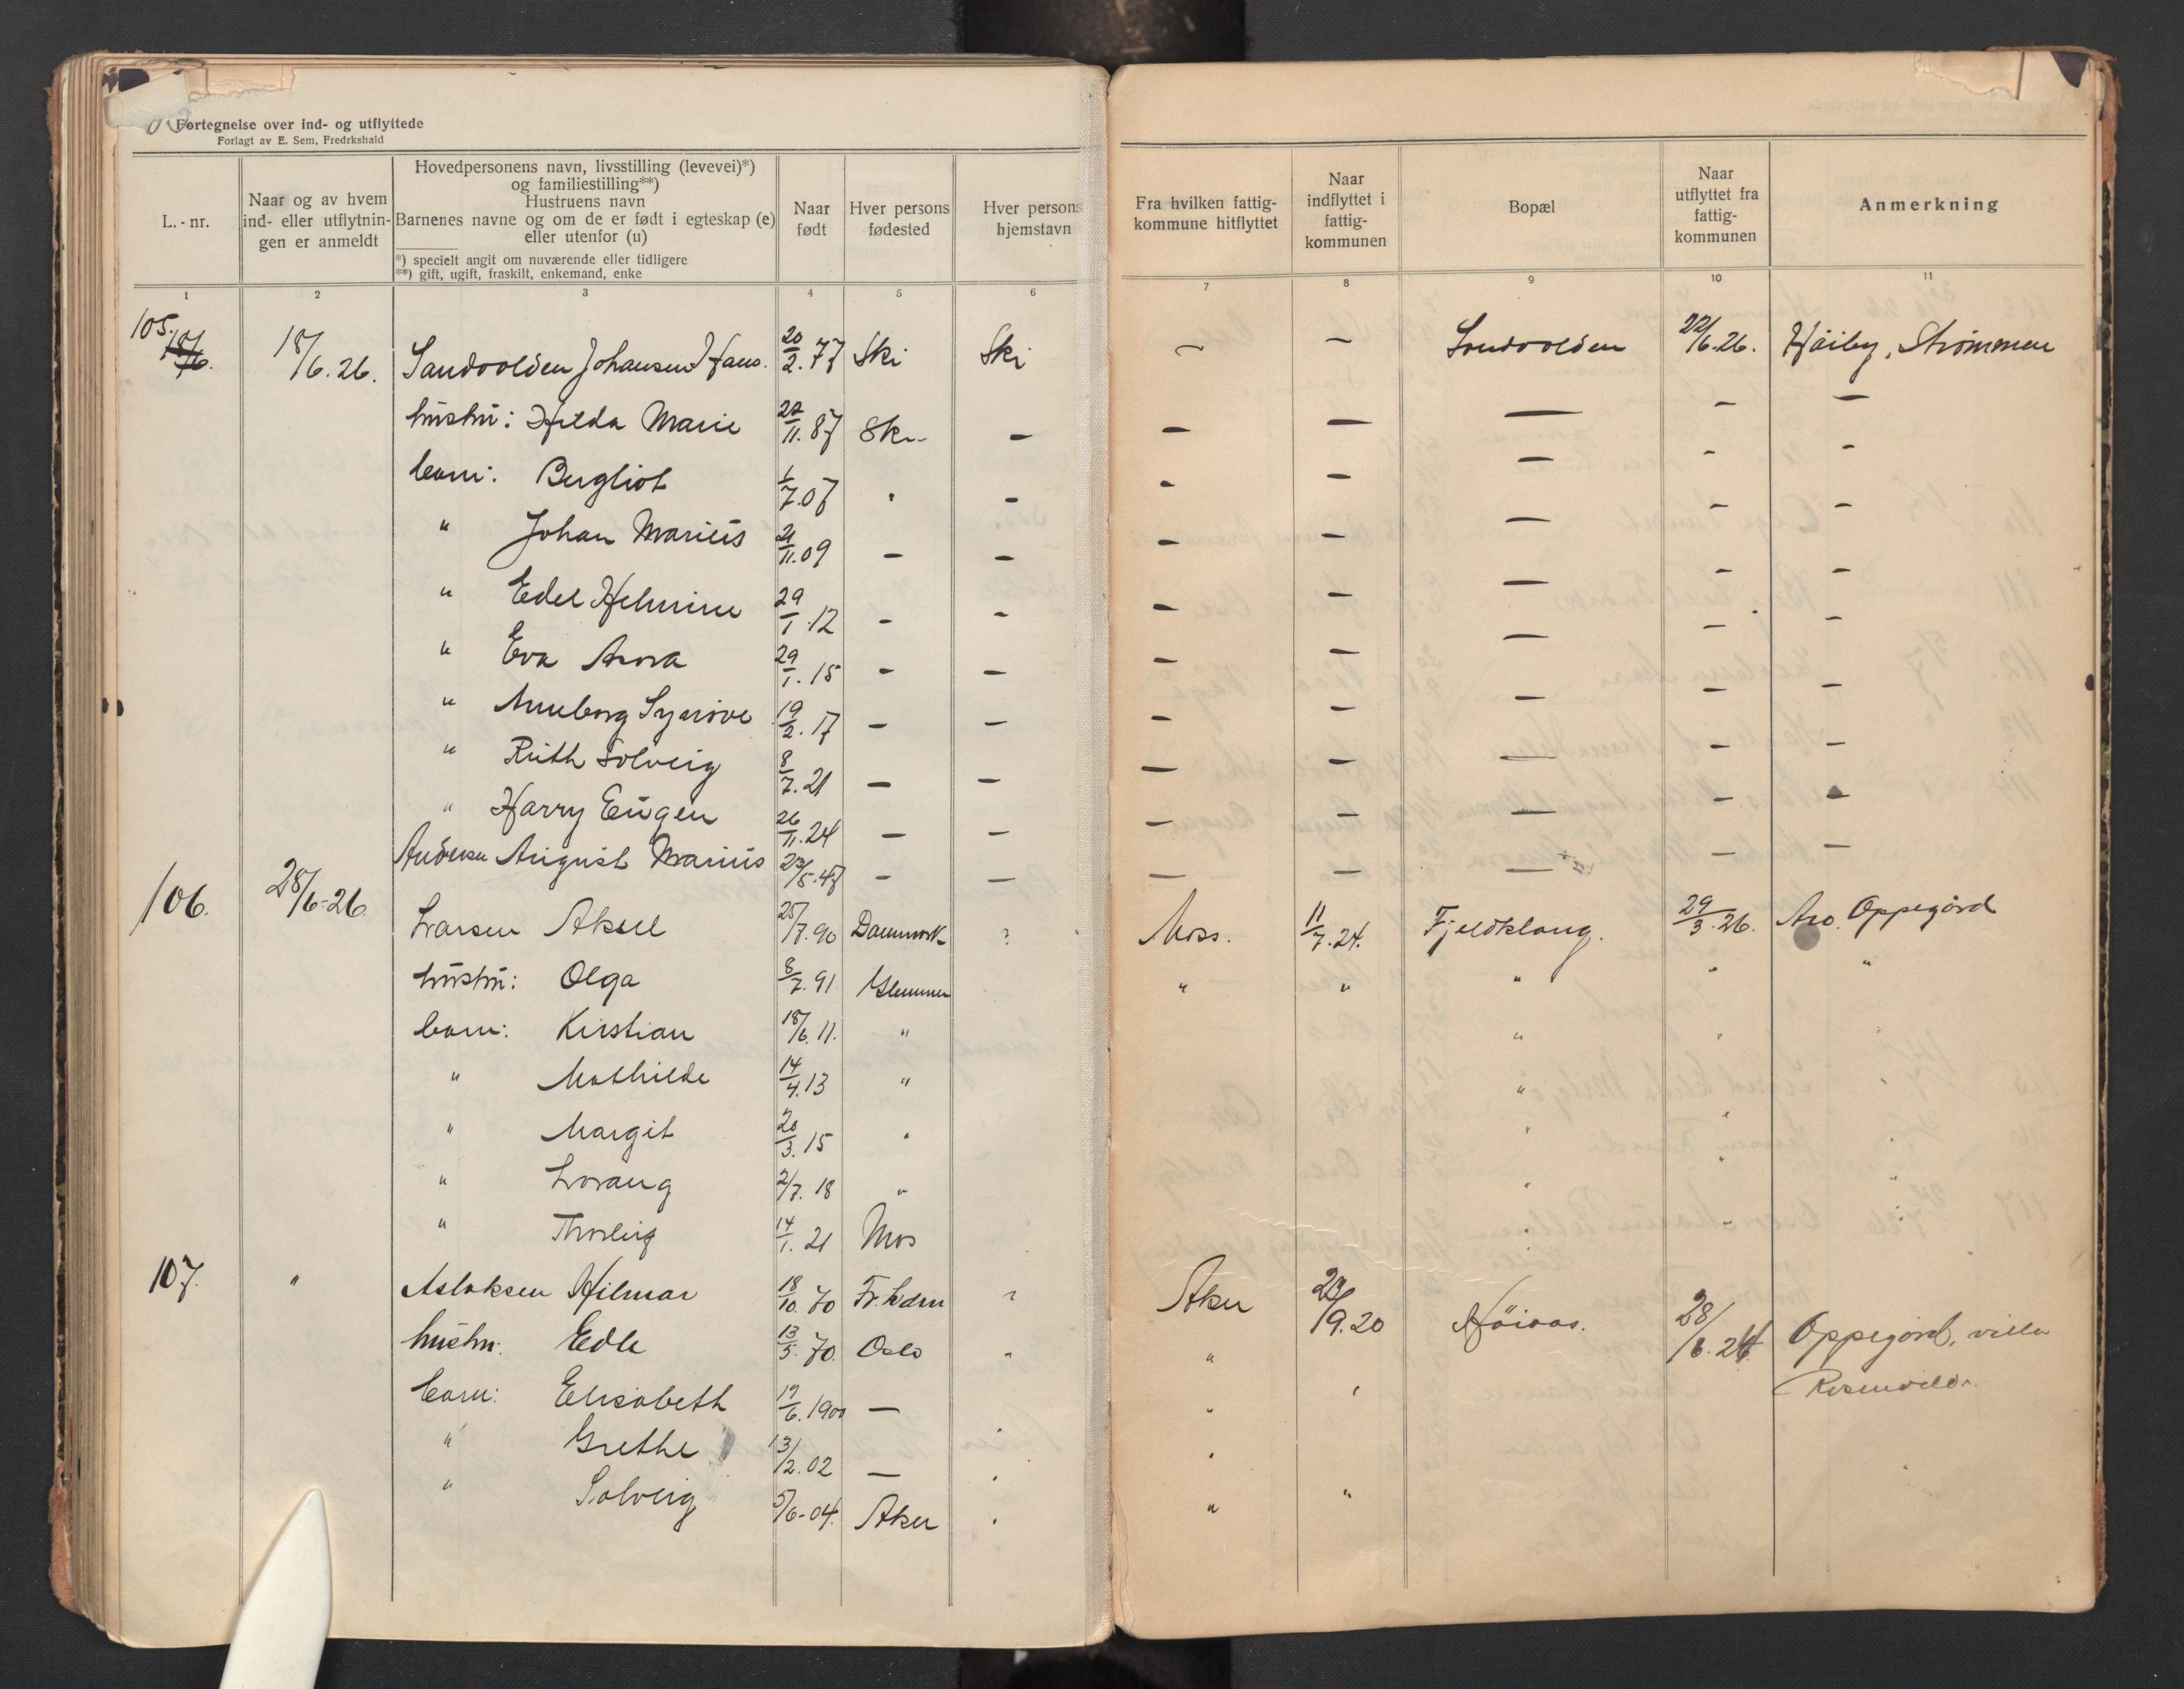 Fortegnelse over ind- og utflyttede
Forlagt av E. Sem, Fredrkshald
L.-nr.
Naar og av hvem ind- eller utflytningen er anmeldt
Hovedpersonens navn, livsstilling (levevei)*)
og familiestilling**)
Hustruens navn
Barnenes navne og om de er født i egteskap (e)
eller utenfor (u)
*) specielt angit om nuværende eller tidligere
**) gift, ugift, fraskilt, enkemand, enke
Naar født
Hver persons fødested
Hver persons hjemstavn
Fra hvilken fattigkommune hitflyttet
Naar indflyttet i fattigkommunen
Bopæl
Naar utflyttet fra fattigkommunen
Anmerkning
1 2 3 4 5 6 7 8 9 10 11
105. 18/6. 18/6.26. Sandvolden Johansen Hans. 20/2.77 Ski Ski — — Sandvolden 22/6.26. Håiby, Strømmen
hustru: Hilda Marie 22/11.87 Ski — — — — — —
barn: Bergliot 1/7.07 " — — — — — —
" Johan Marius 21/11.09 — — — — — — —
" Edel Helmine 29/1.12 — — — — — — —
" Eva Arora 29/1.15 — — — — — — —
" Anneborg Synøve 19/2.17 — — — — — — —
" Ruth Solveig 8/7.21 — — — — — — —
" Harry Eugen 26/11.24 — — — — — — —
Andersen August Marius 23/5.47 — — — — — — —
106. 28/6-26. Larsen Aksel 25/7.90 Danmark ? Moss. 11/7.24. Fjeldklang. 29/3.26. Aro. Oppegård
hustru: Olga 8/7.91 Glemmen " " " " "
barn: Kirstian 18/6.11. " " " "
" Mathilde 14/4.13 " " " "
" Margit 20/3.15 " " " "
" Lorang 2/7.18 " " " "
" Thorleif 14/1.21 Mos " " "
107. " Aslaksen Hilmar 18/10.70 Fr.hdm ? Aker 29/9.20 Höiaas. 28/6.26. Oppegård, villa
hustru: Edle 13/5.70. Oslo " "
Rosenvilde.
barn: Elisabeth 17/6.1900 — " "
" Grethe 13/2.02 — " "
" Solveig 5/6-04. Aker " " "